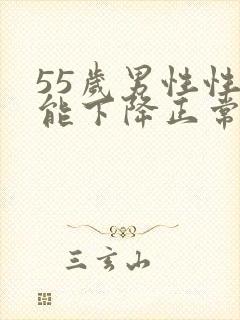 55歲男性性
能下降正常
三玄山